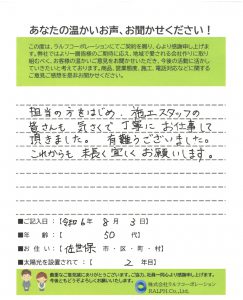 あなたの温かいお声、お聞かせください！
この度は、ラルフコーポレーションにてご契約を賜り、心より感謝申し上げま
す。弊社ではより一層皆様のご期待に応え、地域で愛される会社作りに取り
組むべく、お客様の温かいご意見をお聞かせいただき、今後の活動に活かし
ていきたいと考えております。商品、営業態度、施工、電話対応などに関する
ご意見ご感想を是非お聞かせください。
担当の方をはじめ、施工スタッフの
皆さんも 気さくで 丁寧に お仕事して
頂きました。 有難うございました。
これからも 末長く 宜しく お願いします。
■ご記入日：【令和6年 8月 3日】
■年 齢：【 50 代】
■お住い：【佐世保 市・区・町・村】
■太陽光を設置されて：【 2 年目】
貴重なご意見誠にありがとうございます。ご協力、社員一同心より感謝申し上げます。
今後ともどうぞよろしくお願いいたします。
株式会社ラルフコーポレーション
RALPH Co.,Ltd.